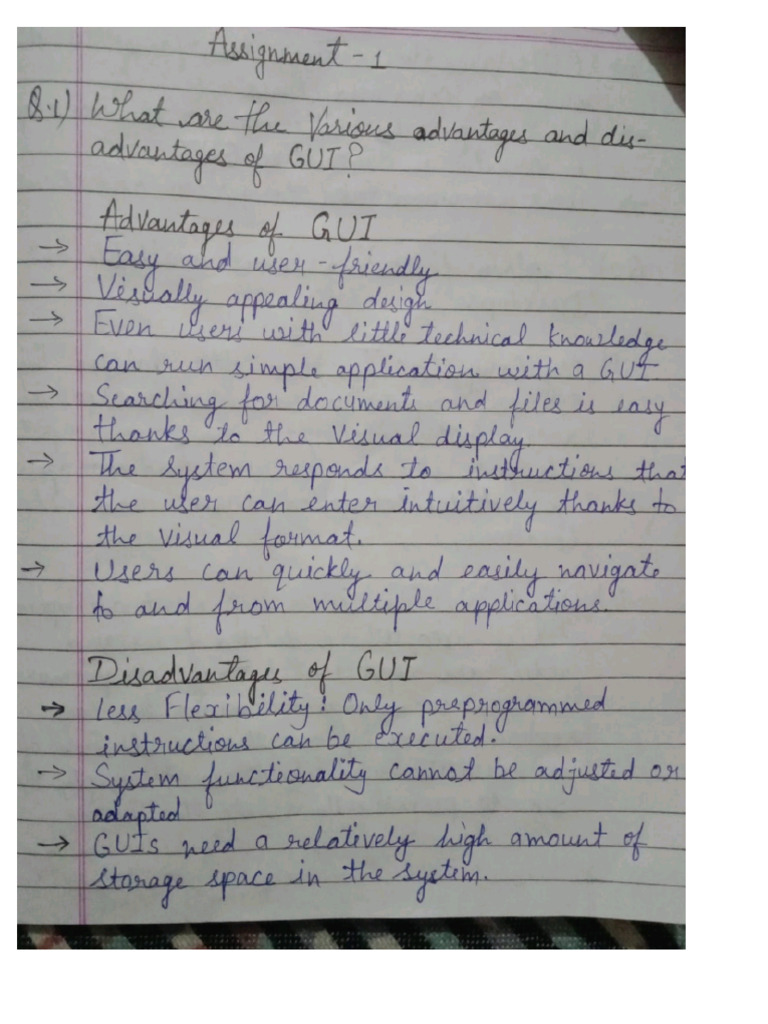 Assignment - 1
Q.1) What are the Various advantages and dis-
advantages of GUI?
Advantages of GUI
→ Easy and user-friendly
→ Visually appealing design
→ Even users with little technical knowledge
can run simple application with a GUI
→ Searching for documents and files is easy
thanks to the visual display.
→ The system responds to instructions that
the user can enter intuitively thanks to
the visual format.
→ Users can quickly and easily navigate
to and from multiple applications.
Disadvantages of GUI
→ less Flexibility: Only preprogrammed
instructions can be executed.
→ System functionality cannot be adjusted or
adapted
→ GUIs need a relatively high amount of
storage space in the system.